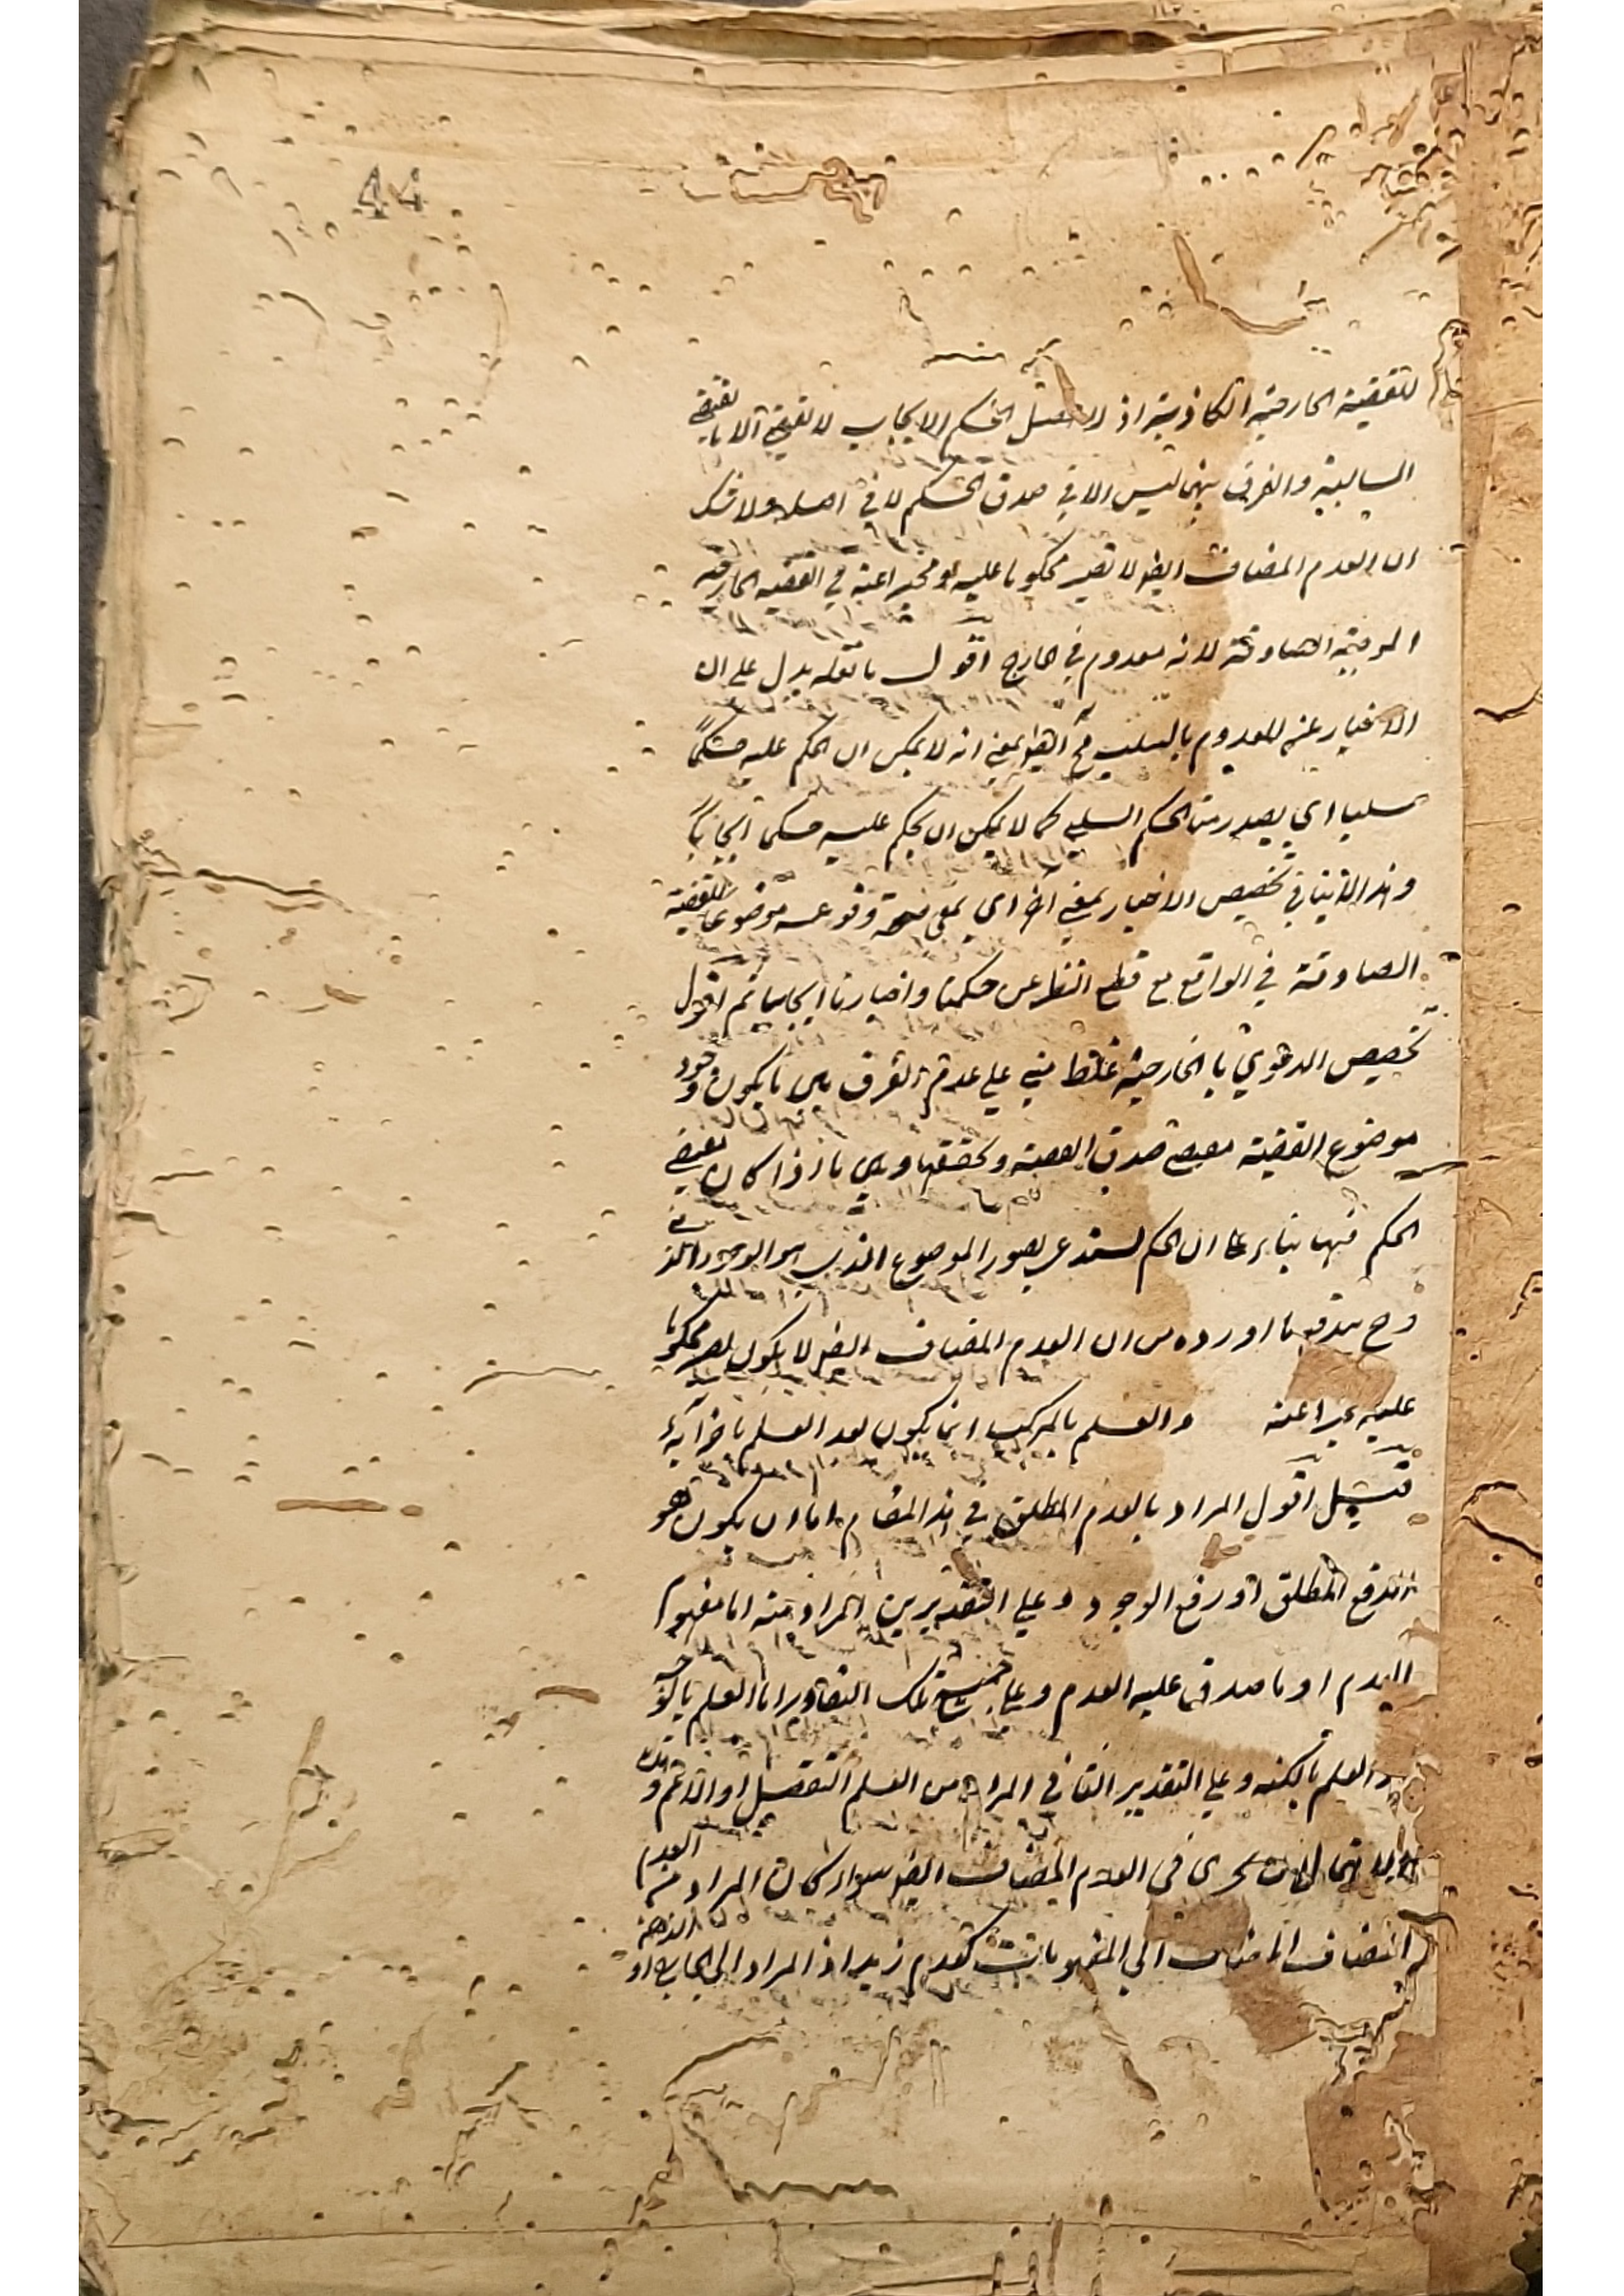 44
للقضية الخارجية الكاذبة اذ الحكم الايجابي لا يقتضي الا ما يقتضي
السالبة والفرق بينهما ليس الا في صدق الحكم لا في اصله ولا شك
ان العدم المضاف ايضا لا يصير محكوما عليه او مخبرا عنه في القضية الخارجية
الموجبة الصادقة لانه معدوم في الخارج اقول ما نقله يدل على ان
الاخبار عن المعدوم بالسلب مح ايضا بمعنى انه لا يمكن ان الحكم عليه حكما
سلبيا اي يصدر منا الحكم السلبي كما لا يمكن ان يحكم عليه حكما ايجابيا
وهذا لا ينافي تخصيص الاخبار بمعنى اخر اي بمعنى صحة وقوعه موضوعا للقضية
الصادقة في الواقع مع قطع النظر عن حكمنا واخبارنا ايجابيا ثم اقول
تخصيص الدعوي بالخارجية غلط مبني علي عدم الفرق بين ما يكون وجود
موضوع القضية مقتضى صدق القضية وتحققها وبين ما اذا كان مقتضى
الحكم فيها بناء على ان الحكم يستدعي تصور الموضوع الذي هو الوجود الذهني
وح يندفع ما اورده من ان العدم المضاف ايضا لا يكون محكوما
عليه مخبرا عنه والعلم بالمركب انما يكون بعد العلم باجزائه
قيل اقول المراد بالعدم المطلق في هذا المقام اما ان يكون هو
الرفع المطلق او رفع الوجود وعلي التقديرين المراد منه اما مفهوم
العدم او ما صدق عليه العدم وعلى جميع تلك التقادير اما العلم بالوجه
والعلم بالكنه وعلي التقدير الثاني المراد من العلم التفصيل او الاعم وهذه
الاحتمالات تجرى فى العدم المضاف ايضا سواء كان المراد منه العدم
المضاف المضاف الي المفهومات كعدم زيد اذ المراد الى الخارج او الذهن